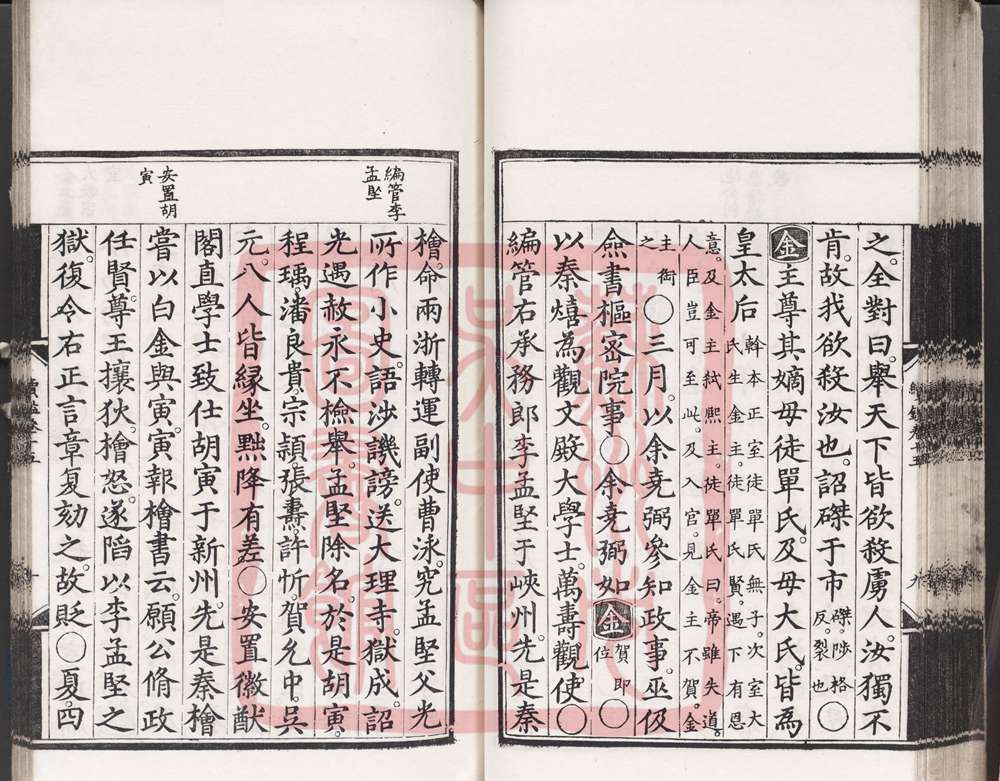 之。全對曰。舉天下皆欲殺虜人。汝獨不
肯。故我欲殺汝也。詔磔于市磔。陟格反。裂也〇
金主尊其嫡母徒單氏。及母大氏。皆為
皇太后幹本正室徒單氏無子。次室大氏生金主。徒單氏賢。遇下有恩
意。及金主弒熙主。徒單氏曰。帝雖失道。人臣豈可至此。及入宮。見金主不賀。金
主銜之〇三月。以余堯弼參知政事。巫伋
僉書樞密院事〇余堯弼如金賀即位〇
以秦熺為觀文殿大學士。萬壽觀使〇
編管右承務郎李孟堅于峽州。先是秦
編管李孟堅
檜。命兩浙轉運副使曹泳。究孟堅父光
所作小史。語涉譏謗。送大理寺。獄成。詔
光遇赦永不檢舉。孟堅除名。於是胡寅。
程瑀。潘良貴。宗穎。張燾。許忻。賀允中。吳
元八人皆緣坐。黜降有差〇安置徽猷
閣直學士致仕胡寅于新州。先是秦檜
安置胡寅
嘗以白金與寅。寅報檜書云。願公脩政
任賢。尊王攘狄。檜怒。遂陷以李孟堅之
獄。復令右正言章复劾之。故貶〇夏。四